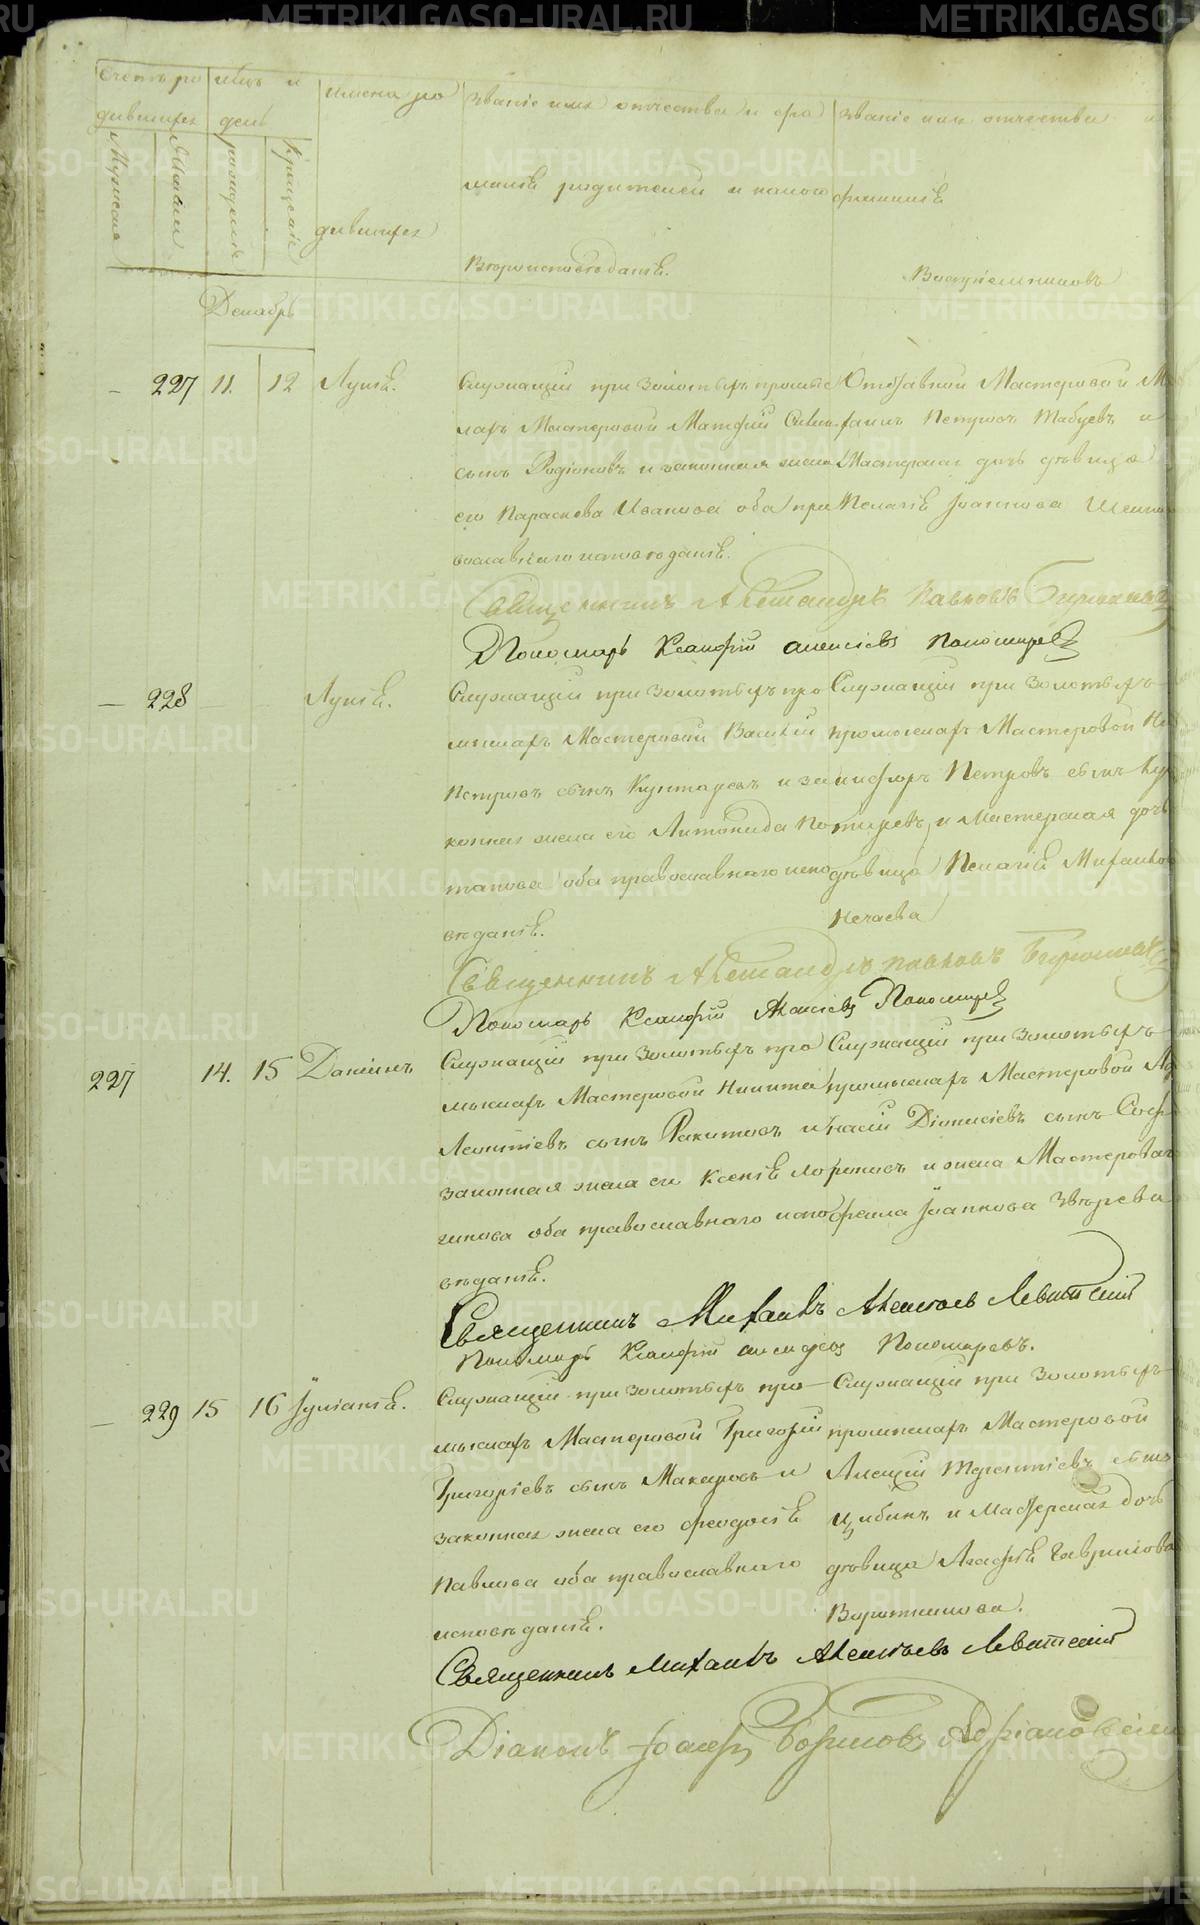 Счетъ ро
дившихся
Мужеска
Женска
мѣц и
день
рожденія
крещенія
имена ро
дившихся
Званіе имя отчество и фа
милія родителей и какого
Вѣроисповѣданія.
Званіе имя отчество и
фамилія
Воспріемниковъ
Декабрь
— 227 11. 12 Лукія.
Служащій при Золотыхъ промыс
лахъ Мастеровой Матфій
сынъ Родіоновъ и законная жена
его Параскева Иванова оба пра
вославнаго исповѣданія.
Отставной Мастеровой
Петровъ Табуевъ и
Мастерская дочь дѣвица
Пелагія Іоаннова
Священникъ Александръ Павловъ Бирюковъ
Пономарь Ксанфій Алексіевъ Пономаревъ
— 228 Лукія.
Служащій при Золотыхъ про
мыслахъ Мастеровой Василій
Петровъ сынъ и за
конная жена его Антонида По
тапова оба православнаго испо
вѣданія.
Служащій при Золотыхъ
промыслахъ Мастеровой Ни
кифоръ Петровъ сынъ
и Мастерская дочь
дѣвица Пелагія Михайлова
Нечаева
Священникъ Александръ Павловъ Бирюковъ
Пономарь Ксанфій Алексіевъ Пономаревъ
227 14. 15 Даніилъ
Служащій при Золотыхъ про
мыслахъ Мастеровой Никита
Леонтіевъ сынъ Ракитовъ и
законная жена его Ксенія Ло
гинова оба православнаго испо
вѣданія.
Служащій при Золотыхъ
промыслахъ Мастеровой
Діонисіевъ сынъ
и жена Мастероваго
Іоаннова Звѣрева
Священникъ Михаилъ Алексѣевъ Левитскій
Пономарь Ксанфій Алексіевъ Пономаревъ.
— 229 15 16 Іуліанія.
Служащій при Золотыхъ про
мыслахъ Мастеровой Григорій
Григоріевъ сынъ Макаровъ и
законная жена его Феодосія
Павлова оба православнаго
исповѣданія.
Служащій при Золотыхъ
промыслахъ Мастеровой
Алексій Терентіевъ сынъ
Цибинъ и Мастерская дочь
дѣвица Агафія Гаврилова
Воротникова.
Священникъ Михаилъ Алексѣевъ Левитскій
Діаконъ Іосифъ Борисовъ Адріановскій
METRIKI.GASO-URAL.RU